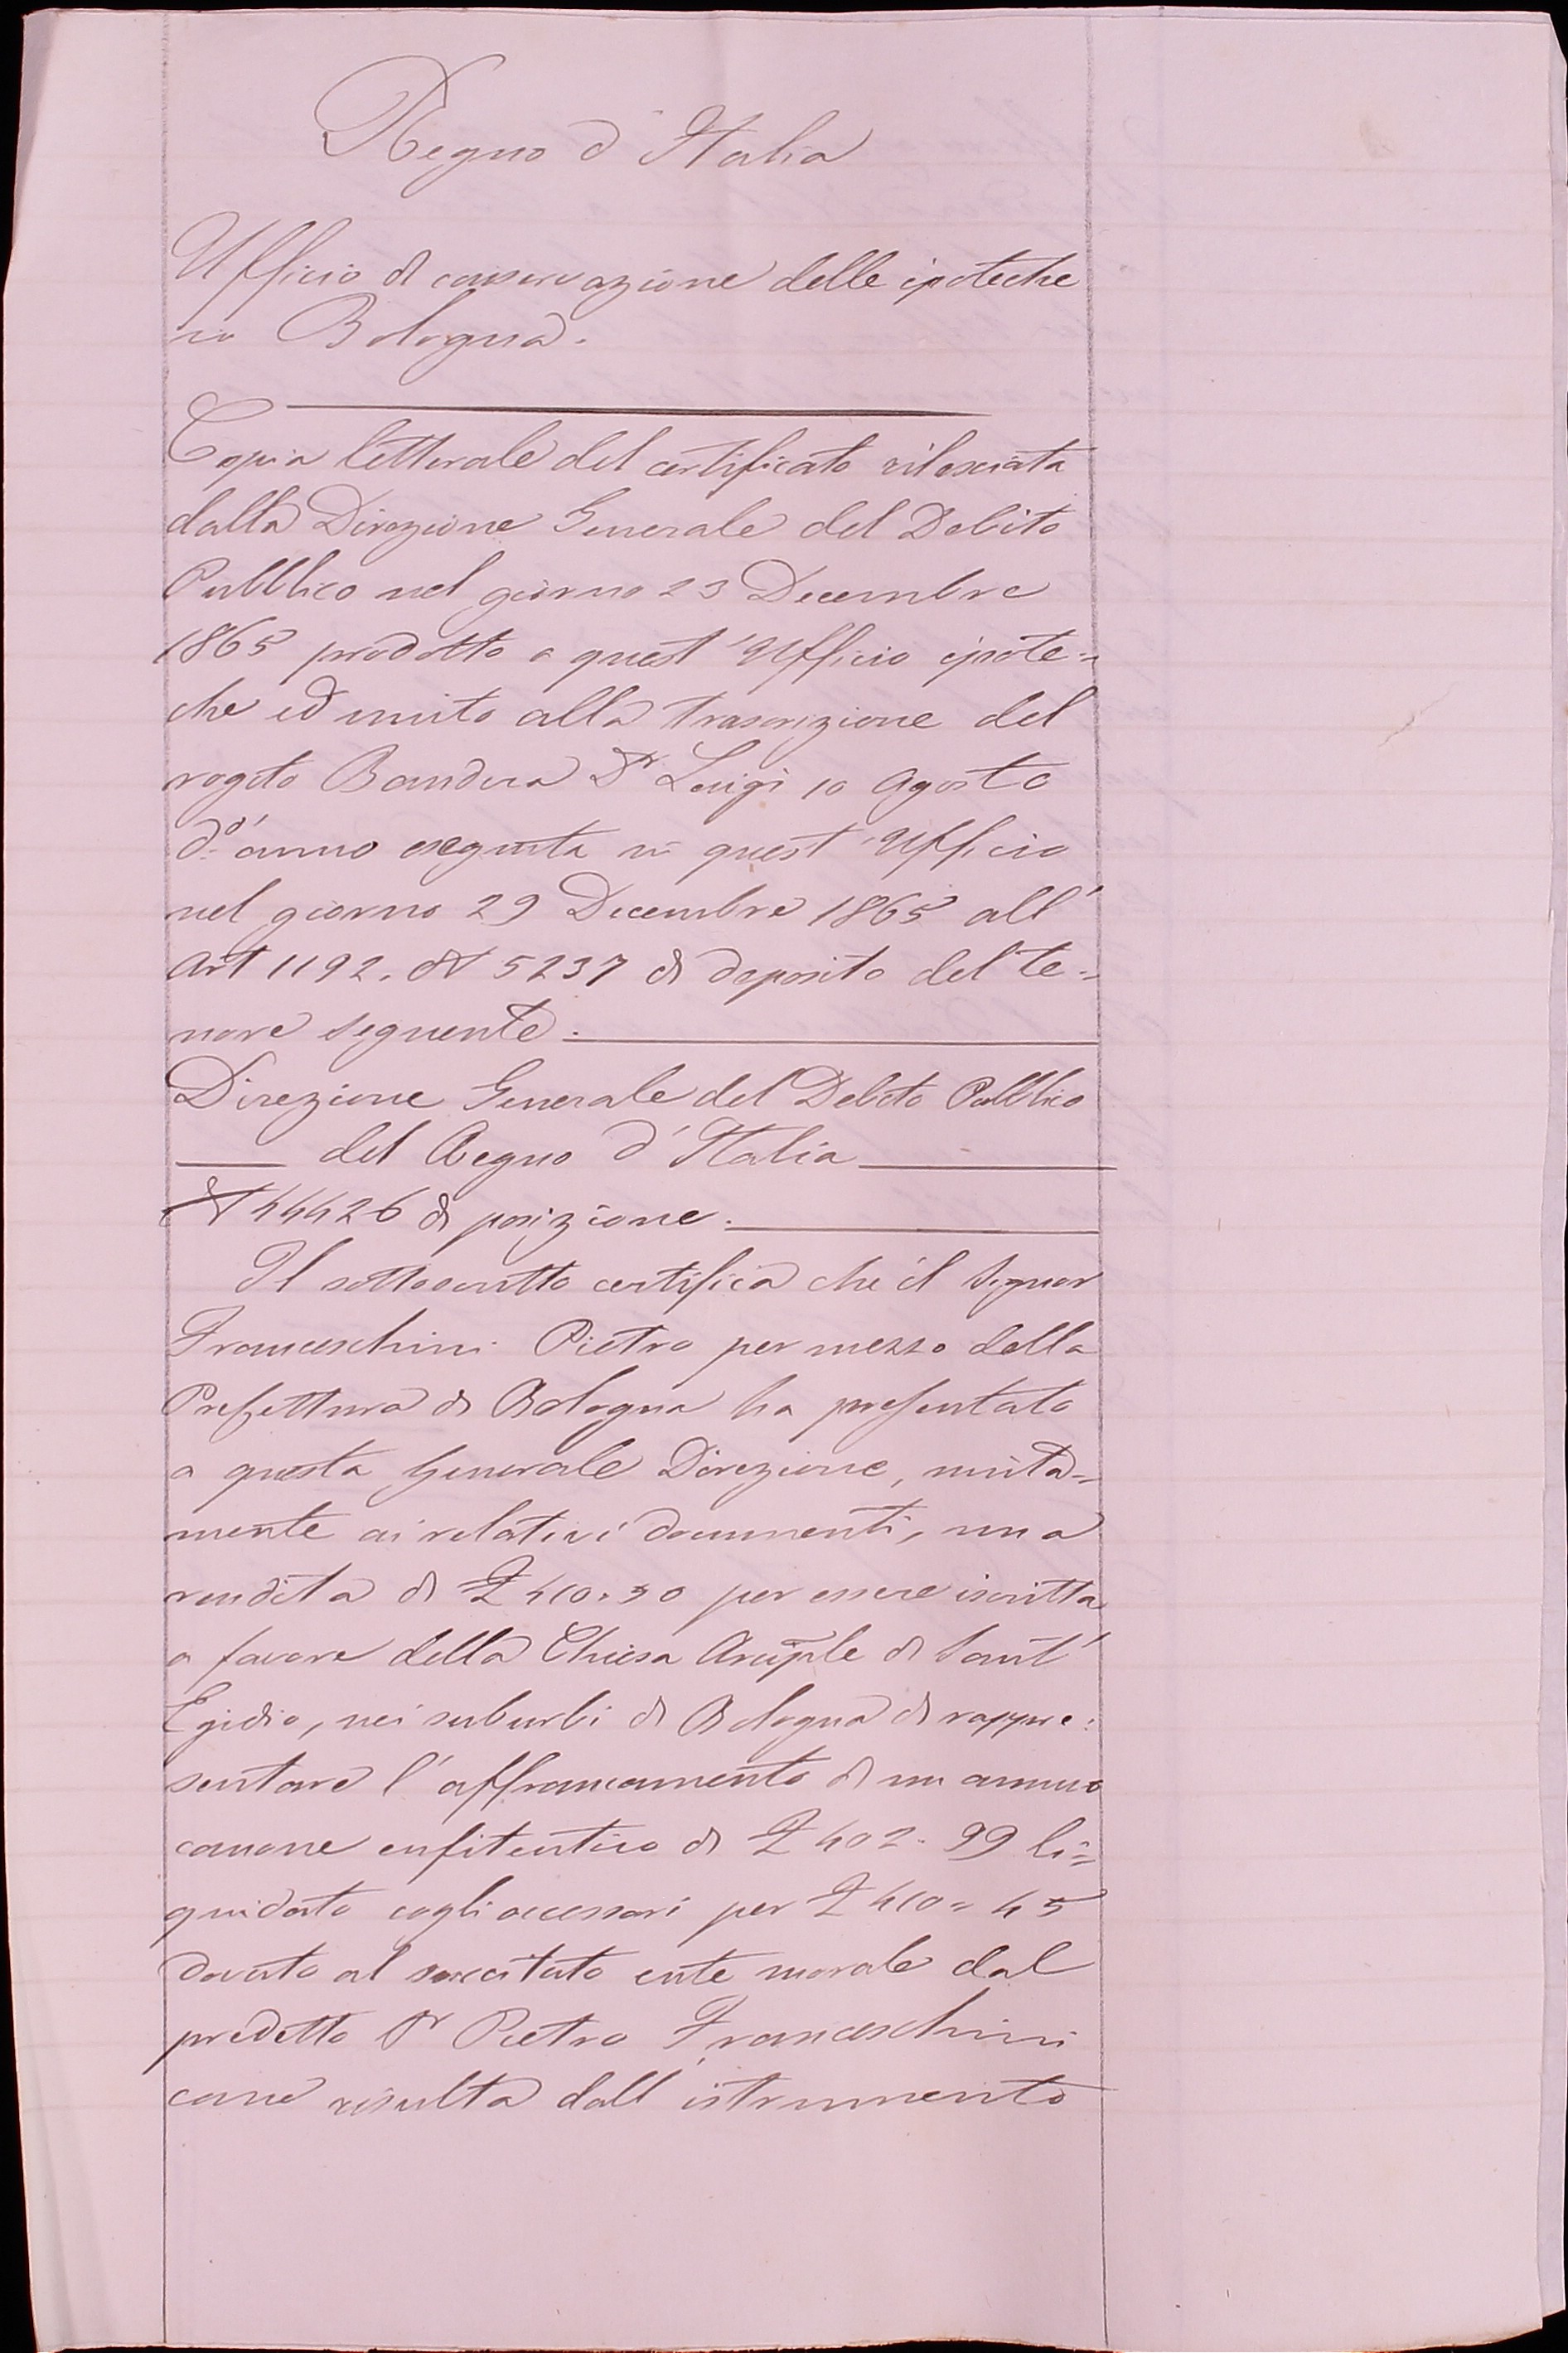 Regno d'Italia
Ufficio di conservazione delle ipoteche
in Bologna.
Copia letterale del certificato rilasciata
dalla Direzione Generale del Debito
Pubblico nel giorno 23 Decembre
1865 prodotto a quest'Ufficio ipote=
che ed unito alla trascrizione del
rogito Bandera Dr Luigi 10 Agosto
do anno eseguita in quest'Ufficio
nel giorno 29 Decembre 1865 all'
Art 1192. N 5237 di deposito del te=
nore seguente:
Direzione Generale del Debito Pubblico
del Regno d'Italia
N 44426 di posizione.
Il sottoscritto certifica che il Signor
Franceschini Pietro per mezzo della
Prefettura di Bologna ha presentato
a questa Generale Direzione, unita=
mente ai relativi documenti, una
rendita di £ 410.50 per essere iscritta
a favore della Chiesa Arciple di Sant'
Egidio, nei suburbi di Bologna di rappre:
sentare l'affrancamento di un annuo
canone enfiteutico di £ 402.99 li=
quidato cogli accessori per £ 410=45
dovuto al succitato ente morale dal
predetto Sr Pietro Franceschini
come risulta dall'istrumento